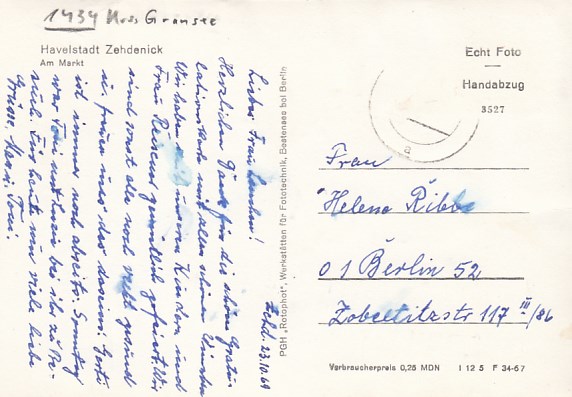 1434 Krs. Gransee
Havelstadt Zehdenick
Am Markt
Zehd. 23.10.69
Liebe Frau
Herzlichen Dank für die schöne Gratu-
lationskarte mit allen schönen Wünschen
Wir haben mit unseren Kindern und
Frau gemütlich gefeiert. Wir
sind sonst alle noch recht gesund
u. freuen uns des Daseins. Gerti
ist immer noch abseits. Sonntag
war Toni und bei ihr zu Be-
such. Für heute nun viele liebe
Grüsse, Toni.
PGH „Rotophot", Werkstätten für Fototechnik, Bestensee bei Berlin
Echt Foto
Handabzug
3527
a
Frau
Helene Ribbe
01 Berlin 52
117 III/86
Verbraucherpreis 0,25 MDN I 12 5 F 34-67